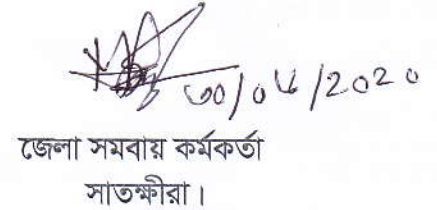 ৩০/০৬/2020
জেলা সমবায় কর্মকর্তা
সাতক্ষীরা।